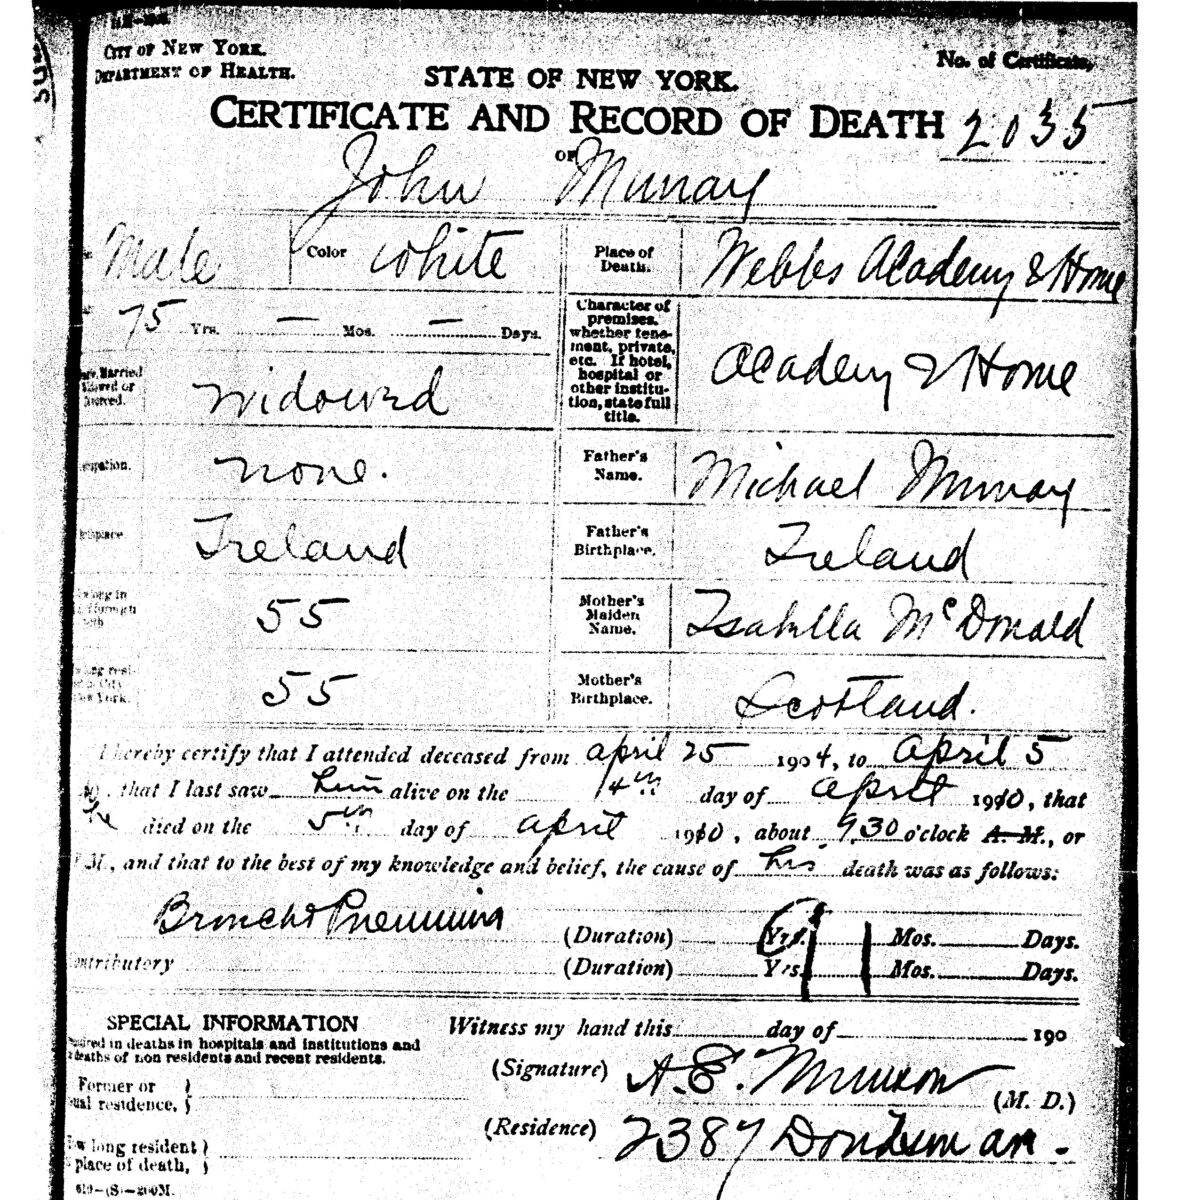 CITY OF NEW YORK.
DEPARTMENT OF HEALTH.
No. of Certificate,
STATE OF NEW YORK.
CERTIFICATE AND RECORD OF DEATH 2035
OF
John Murray
Male Color White
Place of Death. Webbs Academy & Home
75 Yrs. — Mos. — Days.
Character of premises, whether tenement, private, etc. If hotel, hospital or other institution, state full title. Academy & Home
Married
or
widowed
none.
Father's Name. Michael Murray
Ireland
Father's Birthplace. Ireland
long in
55
Mother's Maiden Name. Isabella McDonald
55
Mother's Birthplace. Scotland.
I hereby certify that I attended deceased from april 25 1904, to april 5
that I last saw him alive on the 4th day of april 1910, that
he died on the 5th day of april 1910, about 9.30 o'clock A. M., or
M., and that to the best of my knowledge and belief, the cause of his death was as follows:
(Duration) Yrs. Mos. Days.
(Duration) Yrs. Mos. Days.
SPECIAL INFORMATION
in deaths in hospitals and institutions and
deaths of non residents and recent residents.
Witness my hand this day of 190
(Signature) A. E. (M. D.)
Former or
residence,
(Residence) 2387
long resident
place of death,